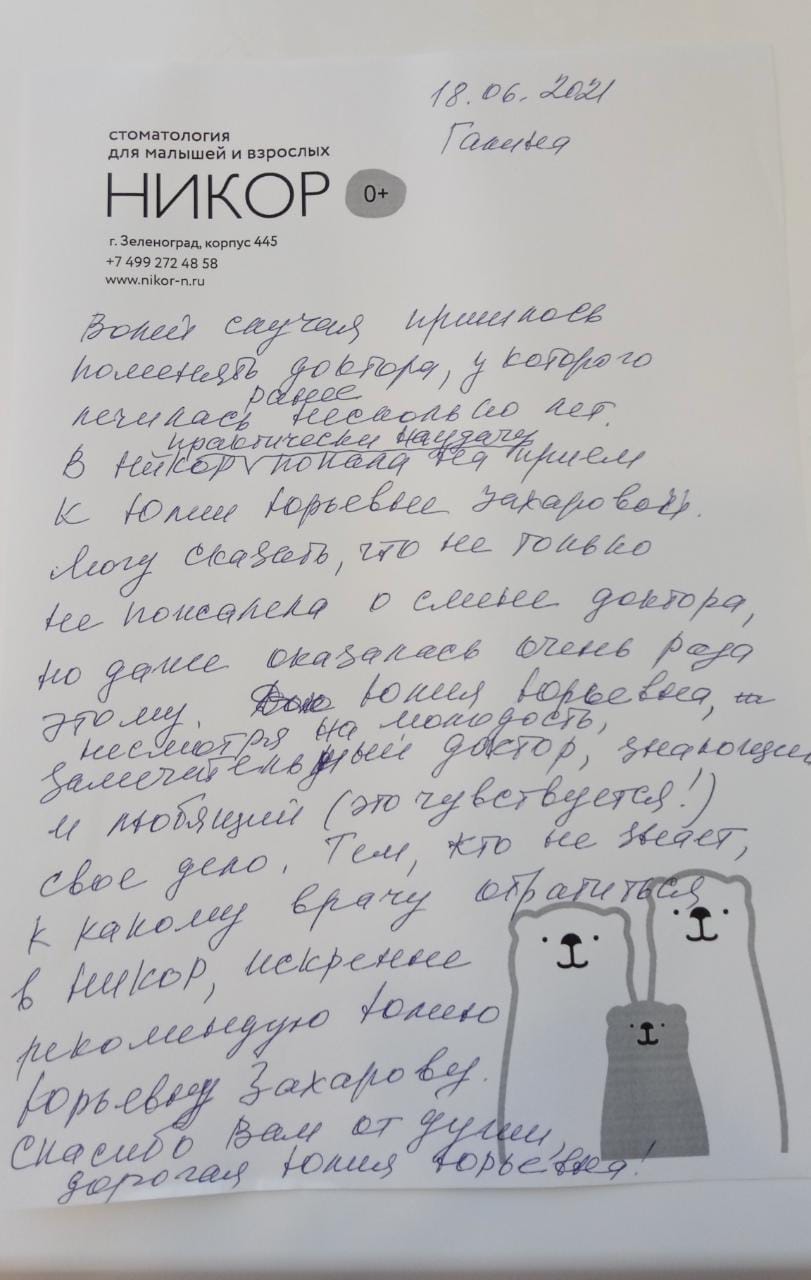 18.06.2021
Галина
стоматология
для малышей и взрослых
НИКОР 0+
г. Зеленоград, корпус 445
+7 499 272 48 58
www.nikor-n.ru
Волей случая пришлось
поменять доктора, у которого
ранее
лечилась несколько лет.
практически наудачу
В Никор попала на прием
к Юлии Юрьевне Захаровой.
Могу сказать, что не только
не пожалела о смене доктора,
но даже оказалась очень рада
этому. Юлия Юрьевна,
несмотря на молодость,
замечательный доктор, знающий
и любящий (это чувствуется!)
свое дело. Тем, кто не знает,
к какому врачу обратиться
в Никор, искренне
рекомендую Юлию
Юрьевну Захарову.
Спасибо Вам от души,
дорогая Юлия Юрьевна!